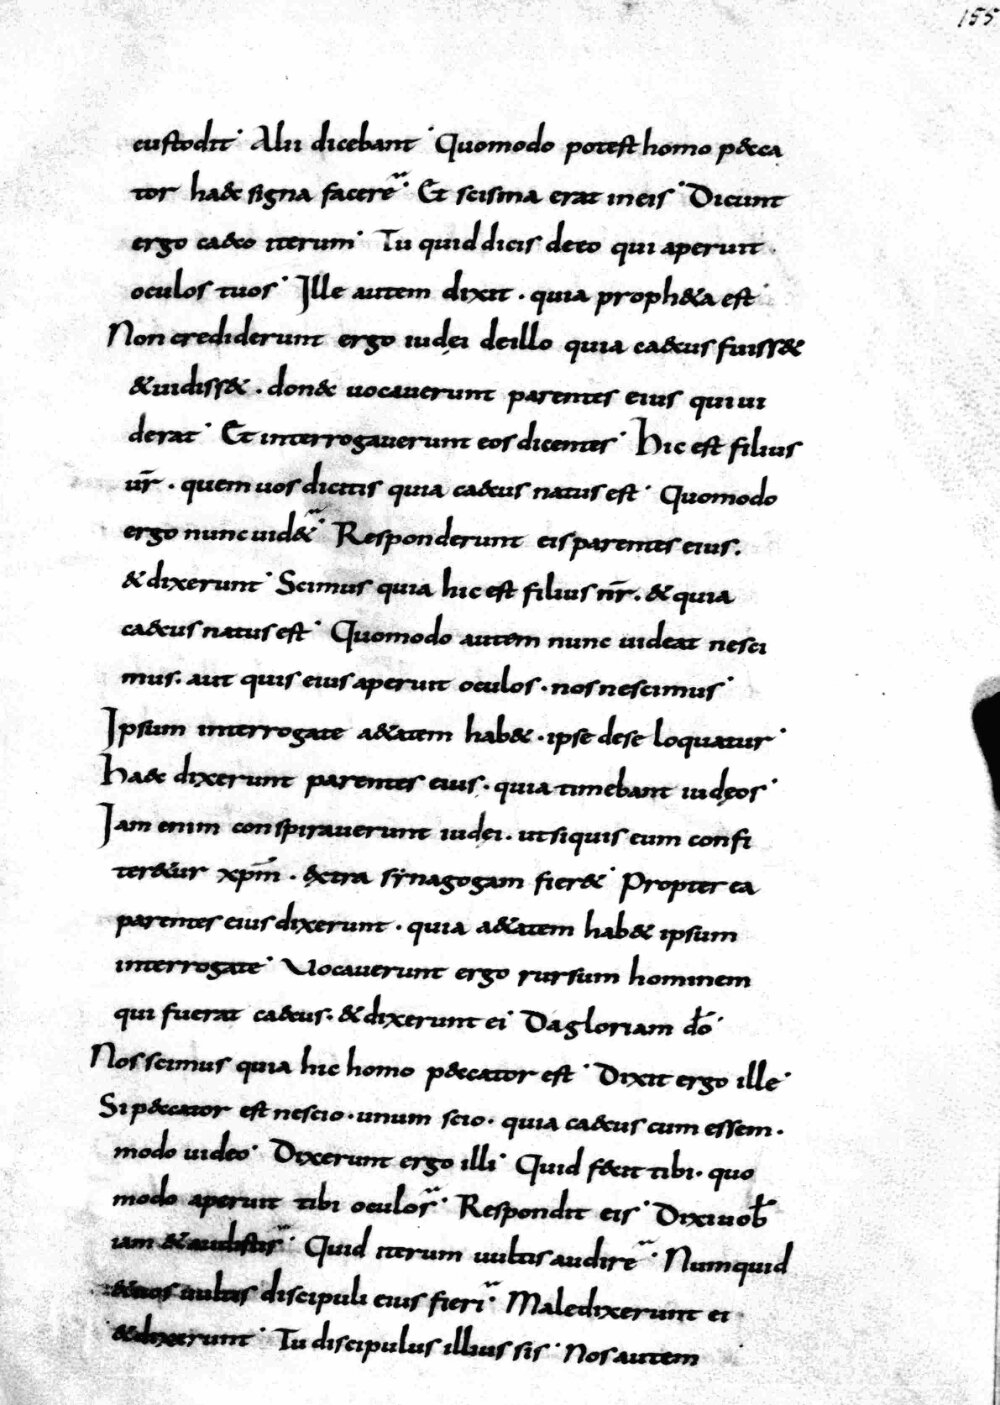 155
custodit· Alii dicebant· Quomodo potest homo pecca
tor haec signa facere· Et scisma erat in eis· Dicunt
ergo caeco iterum· Tu quid dicis de eo qui aperuit
oculos tuos· Ille autem dixit· quia propheta est·
Non crediderunt ergo iudei de illo quia caecus fuisset
& uidisset· donec uocauerunt parentes eius qui ui
derat· Et interrogauerunt eos dicentes· Hic est filius
ur̄· quem uos dicitis quia caecus natus est· Quomodo
ergo nunc uidet· Responderunt eis parentes eius.
& dixerunt· Scimus quia hic est filius nr̄. & quia
caecus natus est· Quomodo autem nunc uideat nesci
mus. aut quis eius aperuit oculos· nos nescimus·
Ipsum interrogate aetatem habet· ipse de se loquatur·
Haec dixerunt parentes eius· quia timebant iudęos·
Iam enim conspirauerunt iudei· ut si quis eum confi
teretur xpm̄· extra synagogam fieret· Propter ea
parentes eius dixerunt· quia aetatem habet ipsum
interrogate· Uocauerunt ergo rursum hominem
qui fuerat caecus· & dixerunt ei· Da gloriam dō·
Nos scimus quia hic homo peccator est· Dixit ergo ille·
Si peccator est nescio· unum scio· quia caecus cum essem·
modo uideo· Dixerunt ergo illi· Quid fecit tibi· quo
modo aperuit tibi oculos· Respondit eis· Dixi uob̄
iam & audistis· Quid iterum uultis audire· Numquid
& uos uultis discipuli eius fieri· Maledixerunt ei
& dixerunt· Tu discipulus illius sis· Nos autem